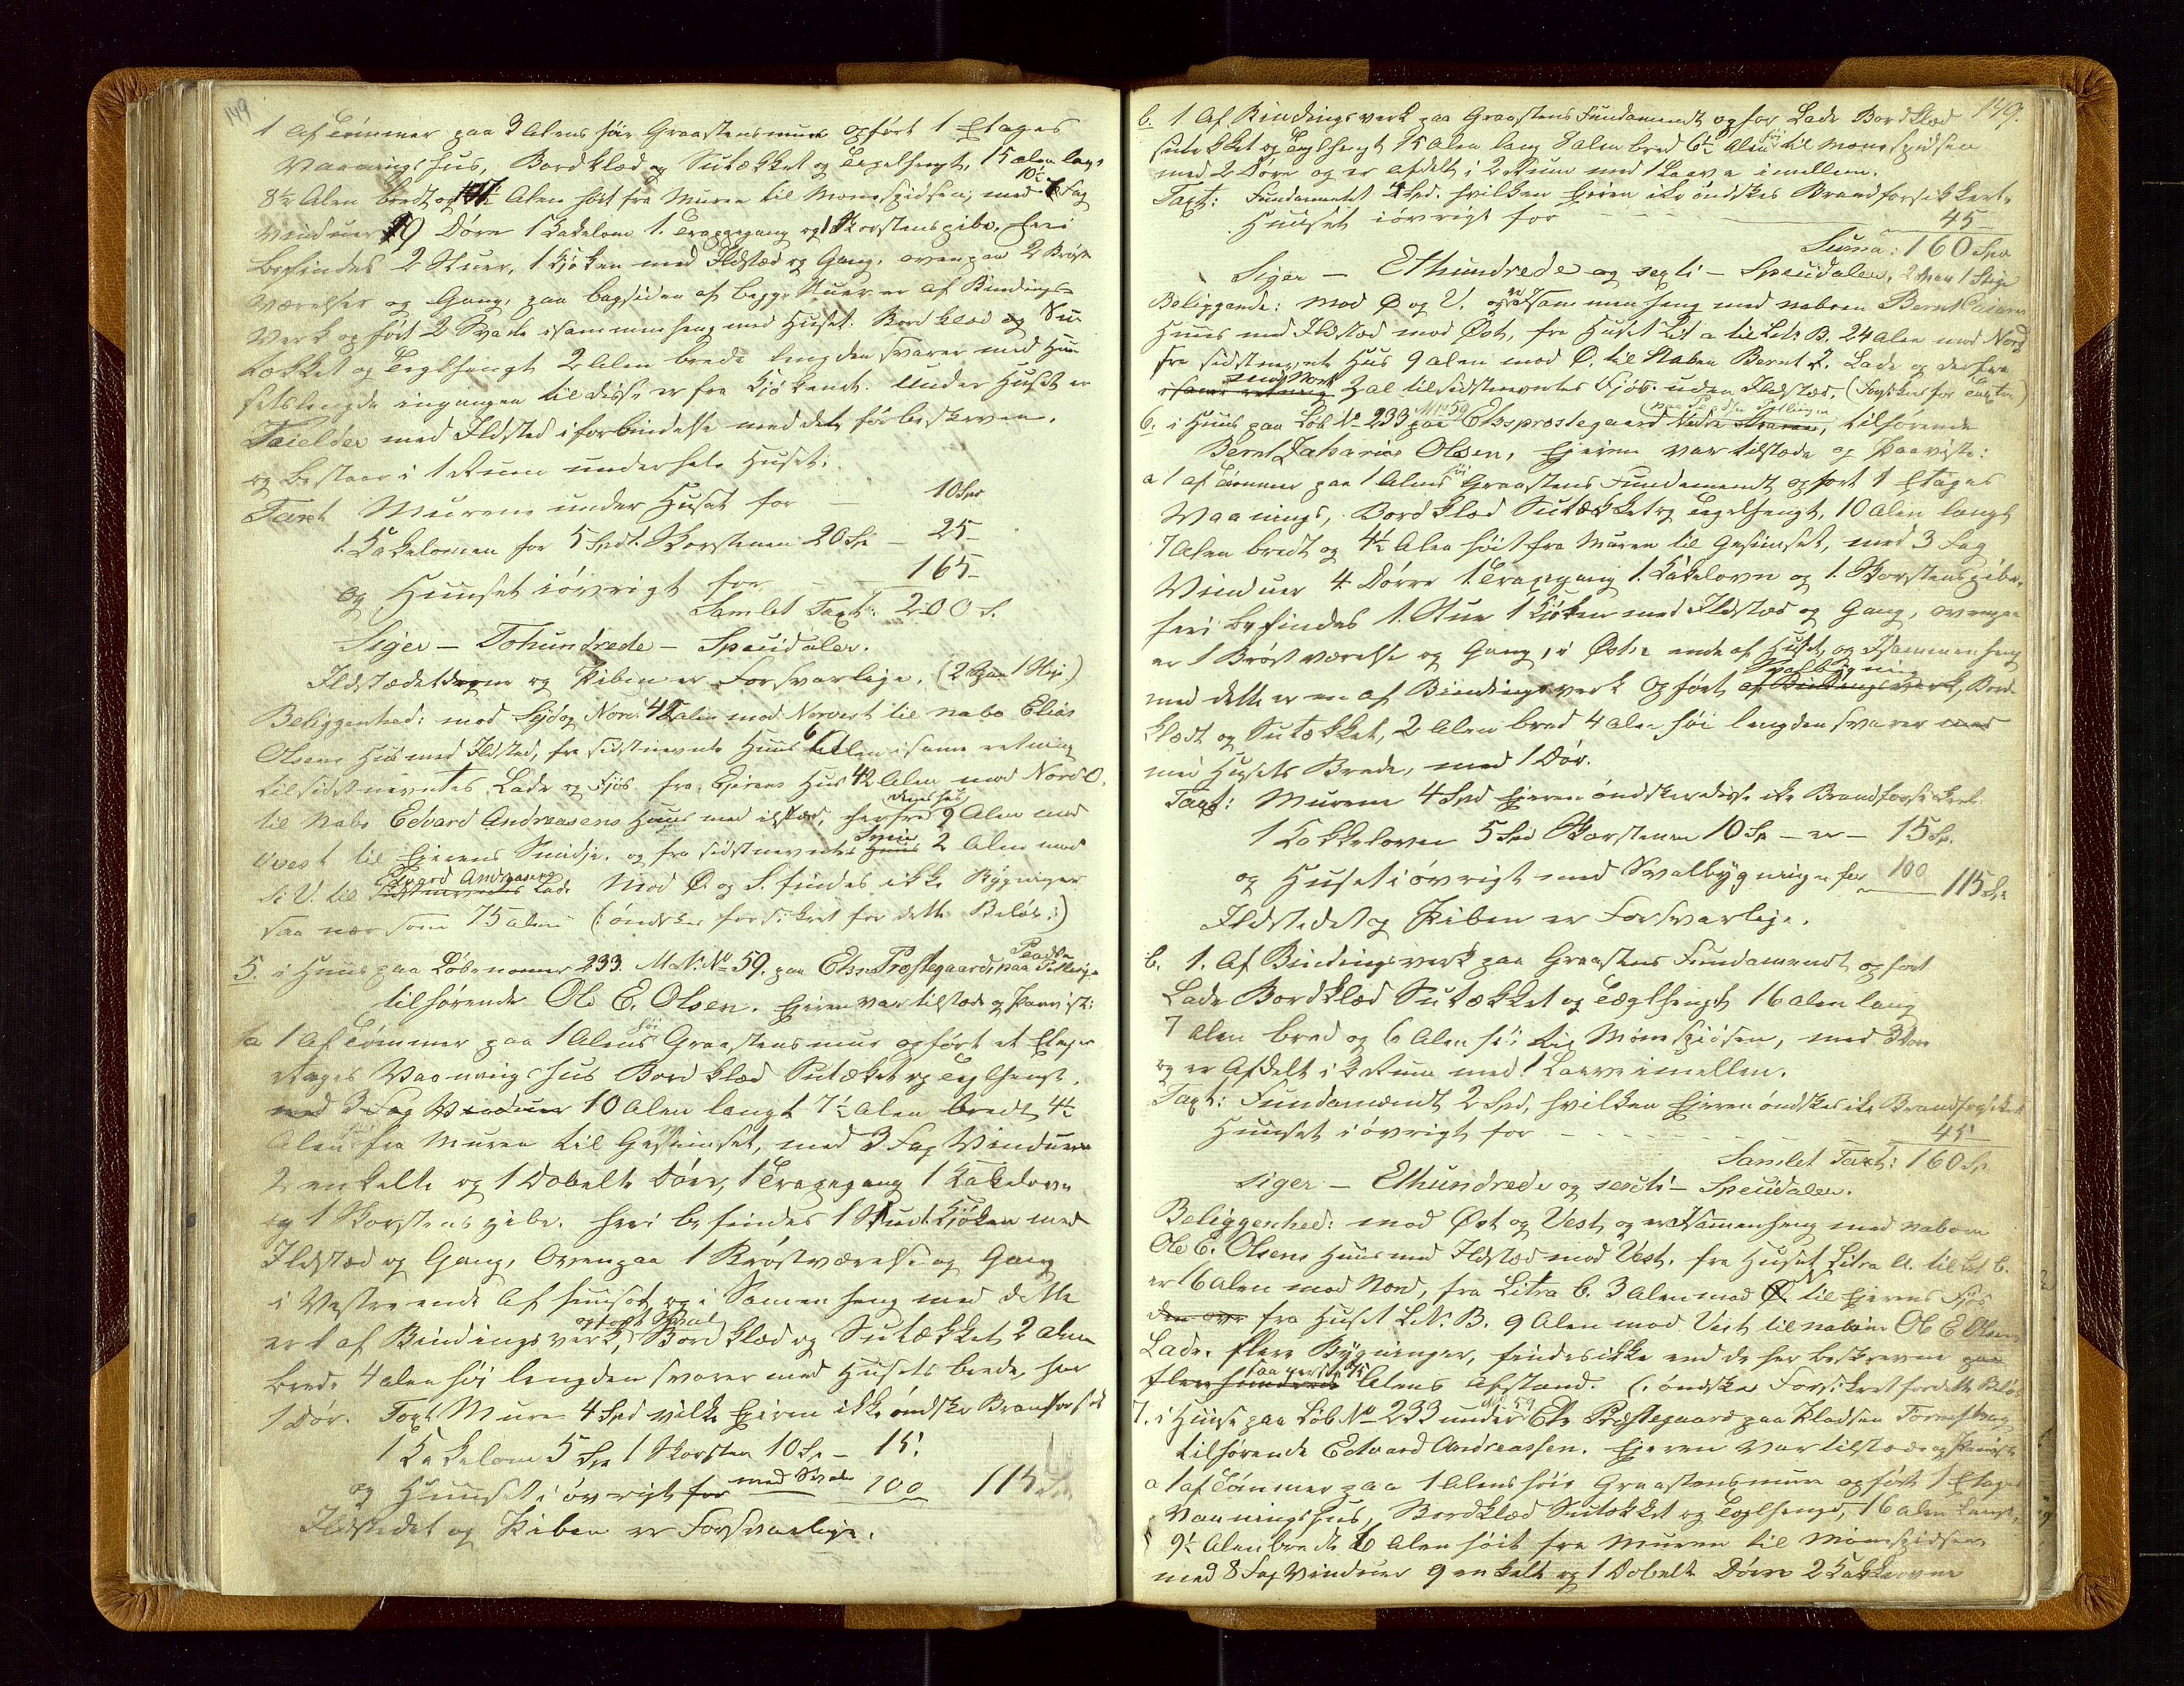 149
1 af Tømmer paa 3 Alens høie Graastensmure opført 1 Etages
Vaaningshus, Bordklæd og Sutækket og Tegelhengt, 15 alen lagt
8½ Alen bredt og 10½ Alen höit fra Muren til Mønespidsen, med 7 Fag
Vinduer 9 Døre 1 Kakelovn 1. Trapegang og 1 Skorstenspibe, heri
befindes 2 Stuer, 1 Kjöken med Ildsted og Gang, ovenpaa 2 Bröst
værelser og Gang, paa bagsiden af begge Stuer er af Bindings-
verk opfört 2 Svale isammenheng med Huset. Bordklæd og Su
tækket og Teglhengt 2 Alen brede lengden svarer med Huu
setslengde ingangen til disse er fra Kjökenet. Under Huset er
Kielder med Ildsted iforbindelse med det før beskreven,
og bestaar i 1 Rum under hele Huset.
Taxt Murene under Huset for — 10 Spd
1. Kakelovnen for 5 Spd 1. Skorstenen 20 Sp — 25-
og Huuset iøvrigt for — 165-
Samlet Taxt: 200 S.
Siger — Tohundrede — Speudaler.
Ildstædet og Piben er Forsvarlige. (2 1 Stige)
Beliggenhed: mod Syd og Nord 42 alen mod Norvest til nabo Elias
Olsens Hus med Ildsted, fra sidstnevnte Huus 6 Alen i same retning
til sidstnevntes Lade og Fjös fra Ejerens Hus 42 Alen mod Nord O.
til Nabo Edvard Andreasens Huus med ilsted, herfra 9 Alen mod
Vest til Ejerens Smidje, og fra sidstnevnte Smie 2 Alen mod
N. V. til Edvard Andreasens Lade Mod Ø. og S. findes ikke Bygninger
saa nær som 75 alen (: öndskes forsikret for dette Beløb :)
5. i Huus paa Løbenomer 233. Mat: No 59. paa Etne Præstegaard, paa Pladsen
tilhörende Ole E. Olsen. Ejeren var tilstæde og Paaviste:
a 1 Af Tømmer paa 1 Alens høi Graastensmur opført et Etages
etages Vaaningshus Bordklæd Sutæket og Teglhengt.
med 3 Fag Vinduer 10 Alen langt 7½ Alen bredt 4½
Alen fra Muren til Gesimset, med 3 Fag Vinduer
2 enkelte og 1 Dobelte Dörr, 1 Trapegang 1 Kakelovn
og 1 Skorstens pibe. heri befindes 1 Stue 1 Kjöken med
Ildsted og Gang, Ovenpaa 1 Bröstværelse og Gang
i Vestre ende Af huuset og i Samenheng med dette
er 1 af Bindingsverk, opfört Sval Bordklæd og Sutækket 2 Alen
bred, 4 alen høi lengden svarer med Husets brede, har
1 Dør. Taxt Muren 4 Spd vilke Ejeren ikke öndsker Brandforsik
1 Kakelovn 5 Sp 1 Skorsten 10 Sp — 15.
og Huuset i øvrigt for med Svale 100 115 Sp
Ildstedet og Piben er Forsvarlige.
149.
b. 1 Af Bindingsverk paa Graastens Fundament opfør Lade Bordklæd
sutækket og Teglhengt 15 Alen lang 8 alen bred 6½ Alen høi til Mønespidsen
med 2 Døre og er afdelt i 2 Rum med 1 Laave imellem.
Taxt: Fundamentet 4 Spd. hvilken Ejeren ike öndskes Brandforsikkert.
Huuset iøvrigt for — 45-
Suma: 160 Spd
Siger — Ethundrede og sexti — Speudaler, 1 Stige
Beliggende: mod Ø og V. og er i sammenheng med naboen Bernt
Huus med Ildsted mod Øst, fra Huset Lit a til Litr B. 24 alen mod Nord
fra sidstnevnt Hus 9 alen mod Ø. til Naboen Bernt Z. Lade og derfra
mod Nord 2 al til sidstnevntes Fjös uden Ildsted,
6. i Huus paa Løb No 233 M No 59 paa Etnepræstegaard Nedre tilhørende
Bernt Zakarias Olsen, Ejeren var tilstæde og Paaviste:
a 1 af Tømmer paa 1 Alens høi Graastens Fundament opført 1 Etages
Vaanings, Bordklæd Sutækket og Tegelhengt, 10 alen langt
7 Alen bredt og 4½ Alen høit fra Muren til Gesimset, med 3 Fag
Vinduer 4 Dörre 1. Trapegang 1. Kakelovn og 1. Skorstenspibe.
heri befindes 1. Stue 1 Kjöken med Ildsted og Gang, ovenpaa
er 1 Bröst værelse og Gang, i Østre ende af Huset og i Sammenheng
med dette er en af Bindingsverk Opført Svalbygning af Bindingsverk, Bord
klædt og Sutækket, 2 Alen bred 4 alen høi lengden svarer med
med Husets Brede, med 1 Dør.
Taxt: Murene 4 Spd Ejeren öndsker disse ike Brandforsikret.
1 Kakkelovn 5 Spd Skorstenen 10 Sp — er — 15 Sp.
og Huset iøvrigt med Svalbygningen for 100 115 Sp
Ildstedet og Piben er Forsvarlige.
b. 1. Af Bindingsverk paa Graastens Fundament opført
Lade Bordklæd Sutækket og Tæglhengt 16 alen lang
7 alen bred og 6 Alen høi til Mønespidsen, med 3 Døre
og er Afdelt i 3 Rum med 1 Laave imellem.
Taxt: Fundament 2 Spd, hvilken Ejeren öndskes ike Brandforsikret
Huuset iøvrigt for — 45
Samlet Taxt: 160 Sp.
siger — Ethundrede og sexti — Speudaler.
Beliggenhed: mod Øst og Vest, og er i Samenheng med naboen
Ole E. Olsens Huus med Ildsted mod Vest, fra Huset Litra A. til Lit b.
er 16 Alen mod Nord, fra Litra b. 3 Alen mod Ø til Ejerens Fjös
fra Huset Lit. B. 9 Alen mod Vest til naboen Ole E Olsens
Lade. flere Bygninger, findes ikke end de her beskrevne paa
flere hundrede saa ner som 75 Alens Afstand. (: öndskes Forsikret for dette Beløb
7. i Huuse paa Løb No 233 under M No 59 Etne Præstegaard paa Pladsen
tilhørende Edvard Andreassen. Ejeren var tilstæde og Paaviste
a 1 af Tømmer paa 1 Alens høie Graastensmure opført 1 Etages
Vaaningshus, Bordklæd Sutækket og Teglhengt, 16 alen langt,
9½ Alen bredt 6 Alen høit fra Muren til Mønespidsen
med 8 Fag Vinduer 9 enkelte og 1 Dobelt Döre 2 Kakkelovne